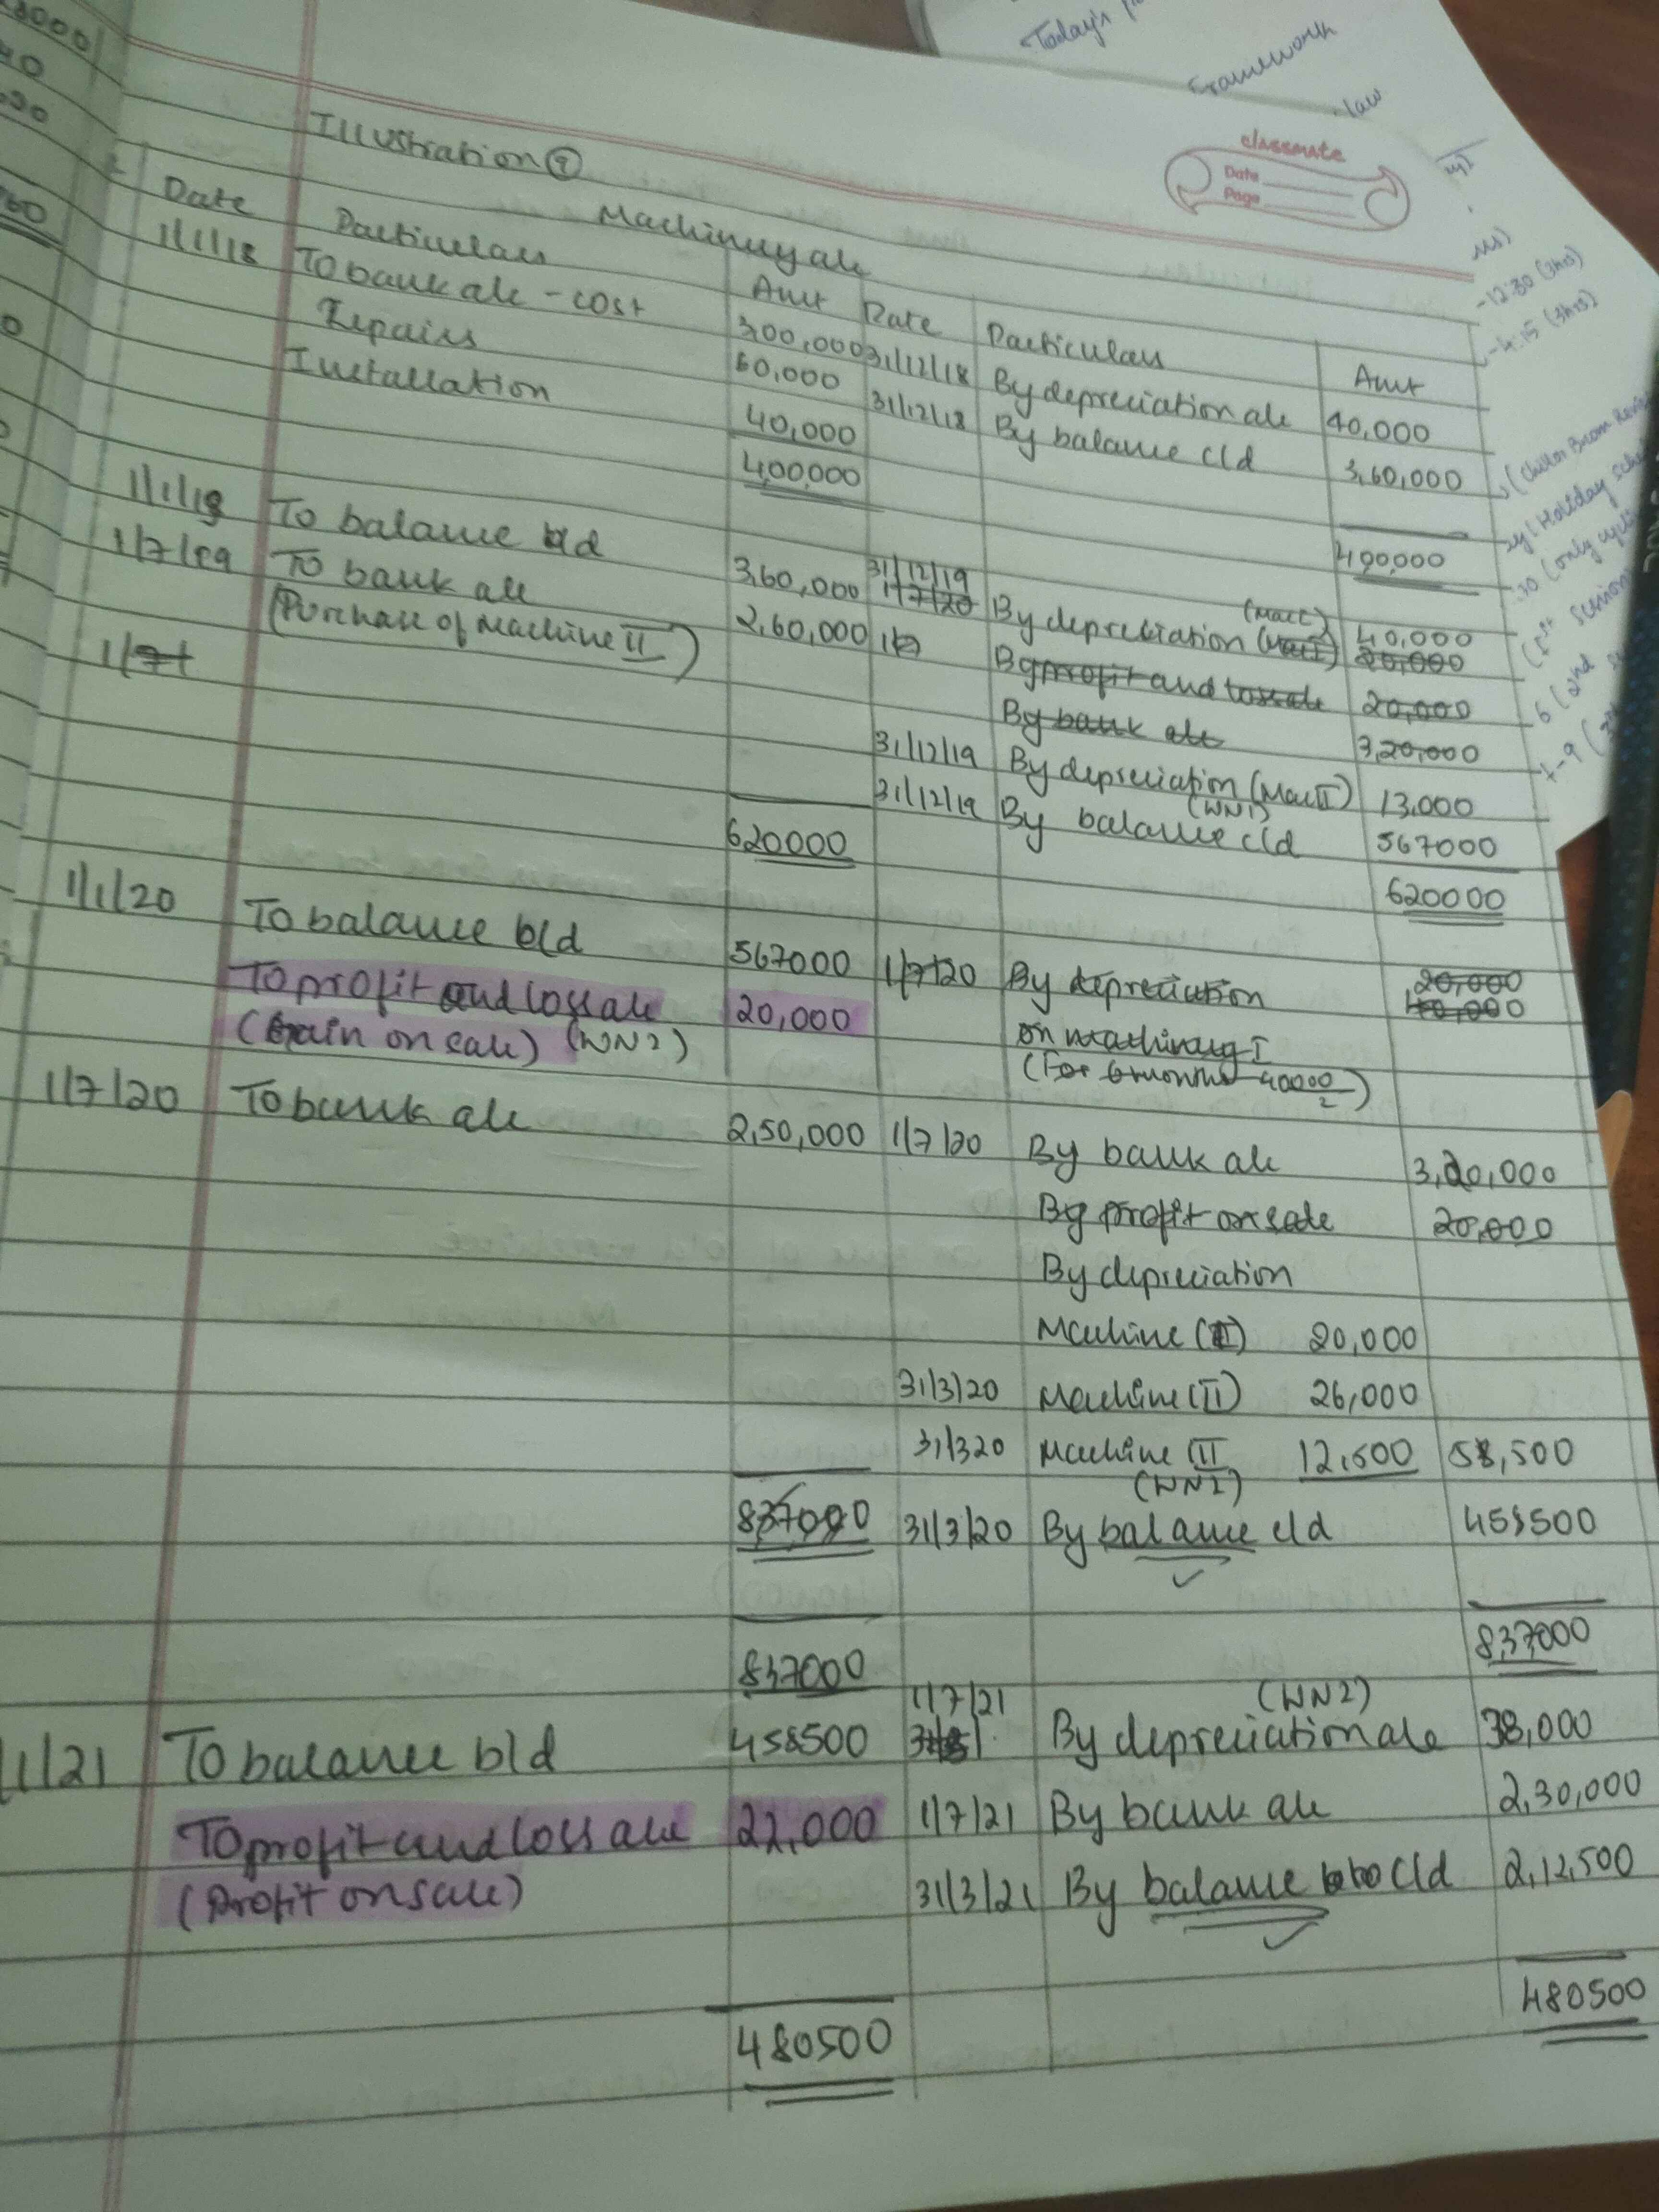 Today's
Framework
law
classmate
Date
Page
-12:30 (3hrs)
-4:15 (3hrs)
Illustration ⑨
Machinery a/c
Date Particulars Amt Date Particulars Amt
1/1/18 To bank a/c - cost 300,000 31/12/18 By depreciation a/c 40,000
Repairs 60,000 31/12/18 By balance c/d 3,60,000
Installation 40,000
400,000 400,000
1/1/19 To balance b/d 3,60,000 31/12/19 By depreciation (Mac I) 40,000
1/7/20 (Mac I) 20,000
1/7/19 To bank a/c 2,60,000 1/7 By profit and loss a/c 20,000
(Purchase of Machine II) By bank a/c 3,20,000
1/7/
31/12/19 By depreciation (Mac II) 13,000
31/12/19 By balance c/d (WN1) 567000
620000 620000
1/1/20 To balance b/d 567000 1/7/20 By depreciation 20,000
40,000
To profit and loss a/c 20,000 on machinery I
(Gain on sale) (WN2) (For 6 months 40000/2)
1/7/20 To bank a/c 2,50,000 1/7/20 By bank a/c 3,20,000
By profit on sale 20,000
By depreciation
Machine (I) 20,000
31/3/20 Machine (II) 26,000
31/3/20 Machine III 12,500 58,500
(WN2)
837000 31/3/20 By balance c/d 458500
837000 837000
1/1/21 To balance b/d 458500 1/7/21 By depreciation a/c (WN2) 38,000
To profit and loss a/c 22,000 1/7/21 By bank a/c 2,30,000
(Profit on sale) 31/3/21 By balance c/d 2,12,500
480500 480500